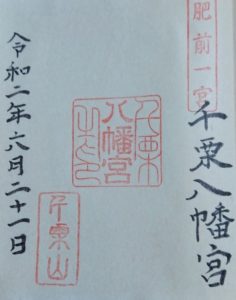 肥前一宮
千栗八幡宮
千栗
八幡宮
千栗山
令和二年六月二十一日